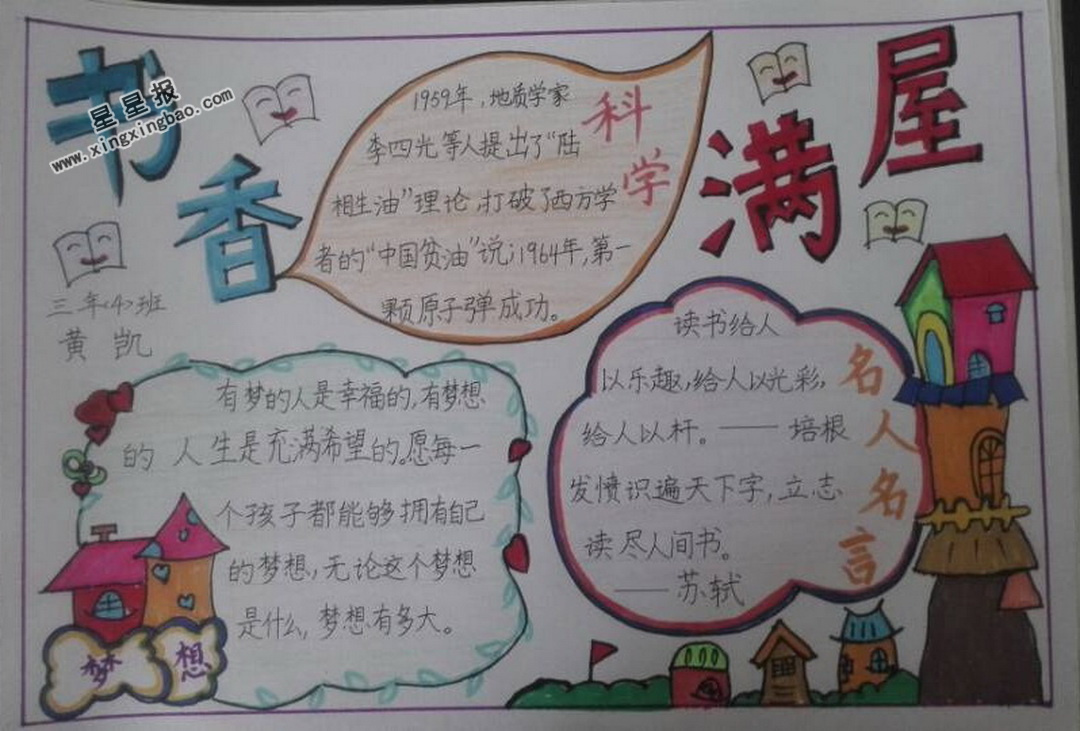 书香满屋
星星报
www.xingxingbao.com
三年<4>班
黄凯
科学
1959年，地质学家
李四光等人提出了“陆
相生油”理论，打破了西方学
者的“中国贫油”说；1964年，第一
颗原子弹成功。
名人名言
读书给人
以乐趣，给人以光彩，
给人以杆。——培根
发愤识遍天下字，立志
读尽人间书。
——苏轼
有梦的人是幸福的，有梦想
的人生是充满希望的。愿每一
个孩子都能够拥有自己
的梦想，无论这个梦想
是什么，梦想有多大。
梦想